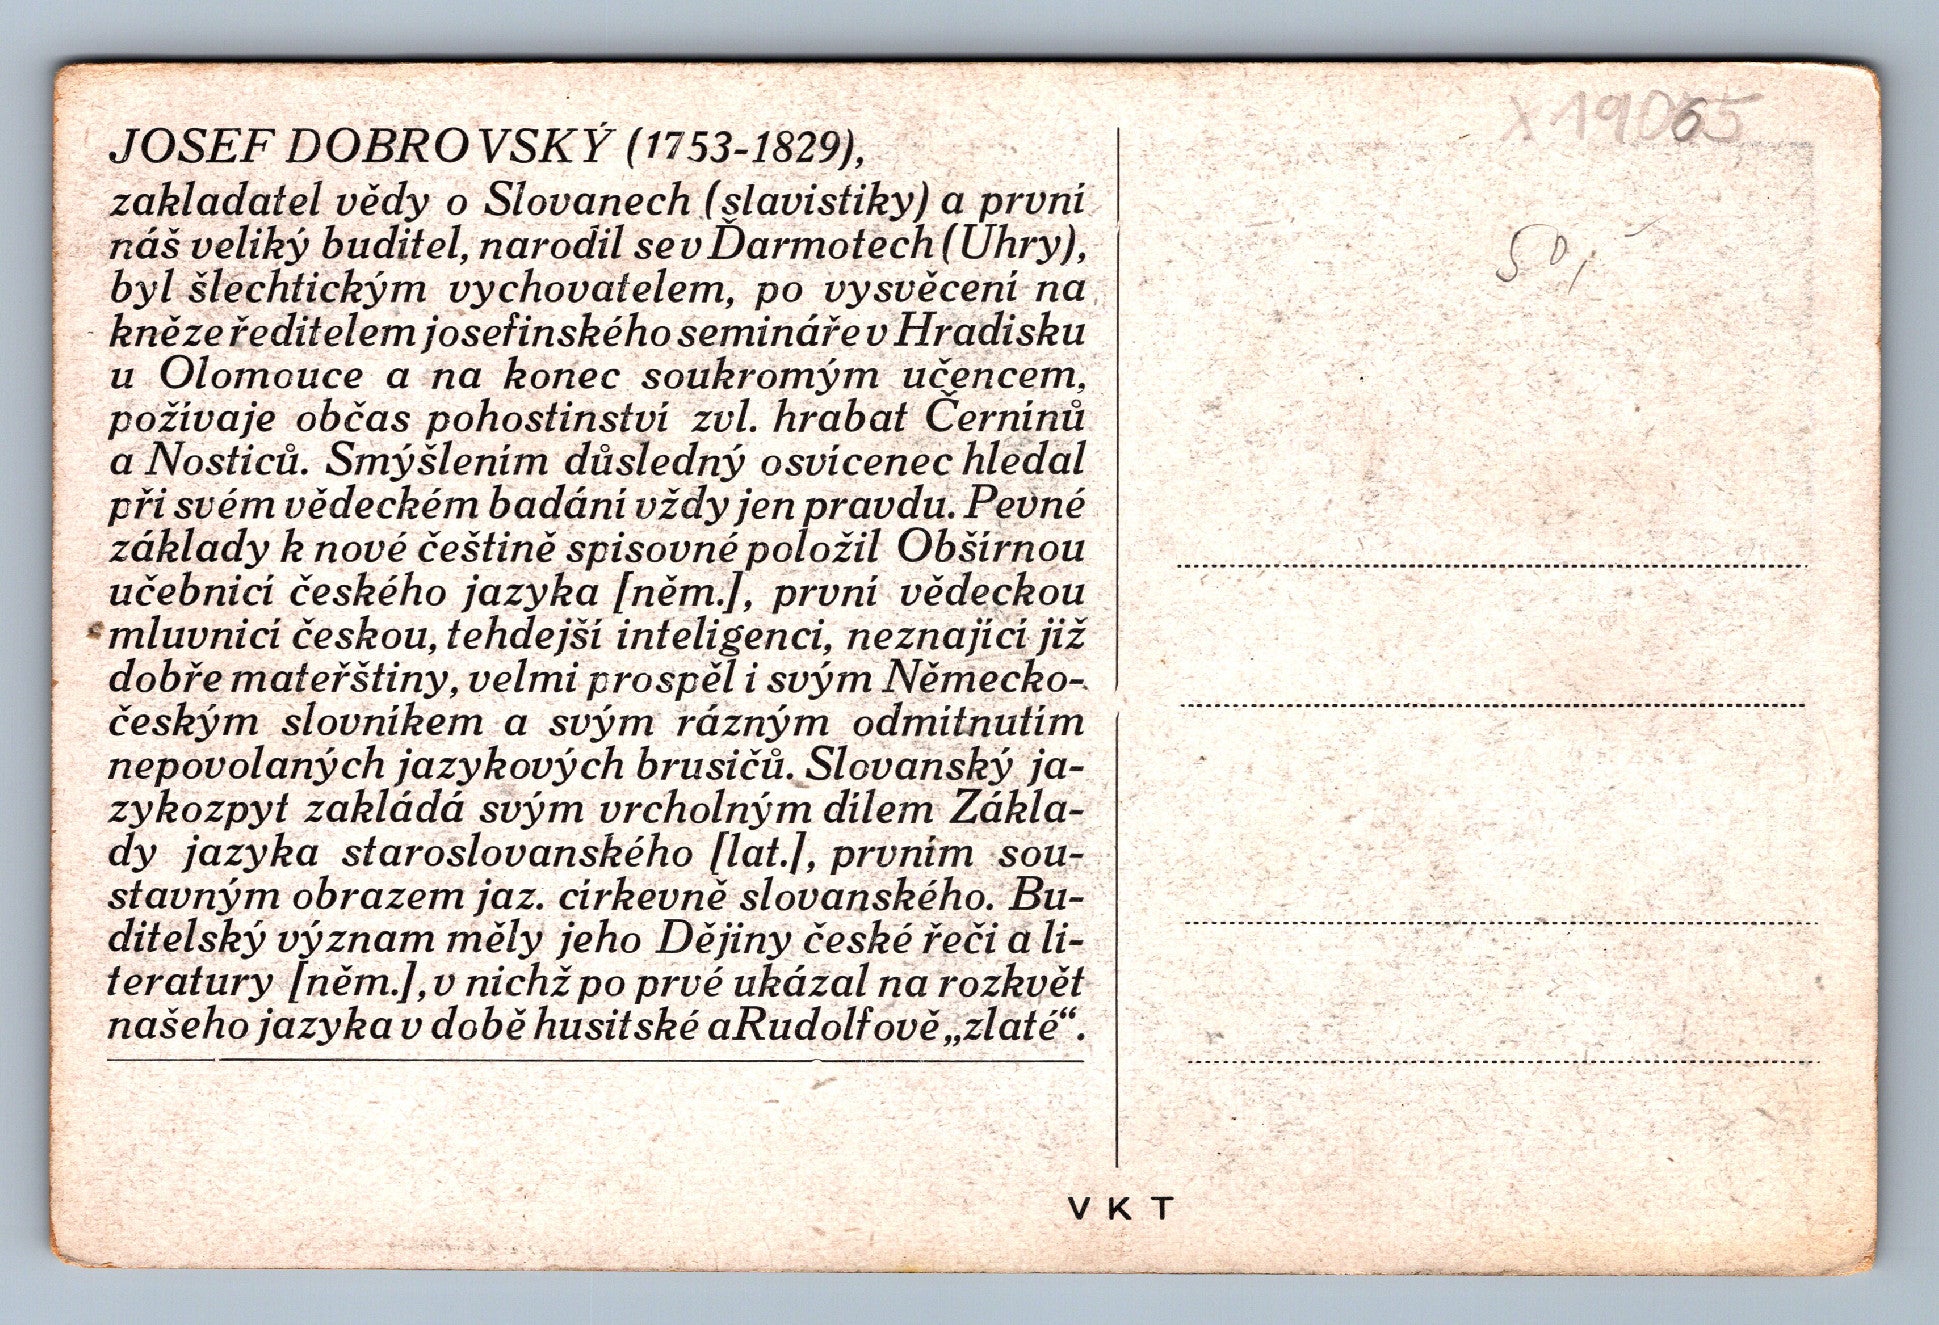 JOSEF DOBROVSKÝ (1753-1829),
zakladatel vědy o Slovanech (slavistiky) a první
náš veliký buditel, narodil se v Ďarmotech (Uhry),
byl šlechtickým vychovatelem, po vysvěcení na
kněze ředitelem josefinského semináře v Hradisku
u Olomouce a na konec soukromým učencem,
požívaje občas pohostinství zvl. hrabat Černínů
a Nosticů. Smýšlením důsledný osvícenec hledal
při svém vědeckém badání vždy jen pravdu. Pevné
základy k nové češtině spisovné položil Obšírnou
učebnicí českého jazyka [něm.], první vědeckou
mluvnicí českou, tehdejší inteligenci, neznající již
dobře mateřštiny, velmi prospěl i svým Německo-
českým slovníkem a svým rázným odmítnutím
nepovolaných jazykových brusičů. Slovanský ja-
zykozpyt zakládá svým vrcholným dílem Zákla-
dy jazyka staroslovanského [lat.], prvním sou-
stavným obrazem jaz. církevně slovanského. Bu-
ditelský význam měly jeho Dějiny české řeči a li-
teratury [něm.], v nichž po prvé ukázal na rozkvět
našeho jazyka v době husitské a Rudolfově „zlaté“.
X19065
50,-
V K T